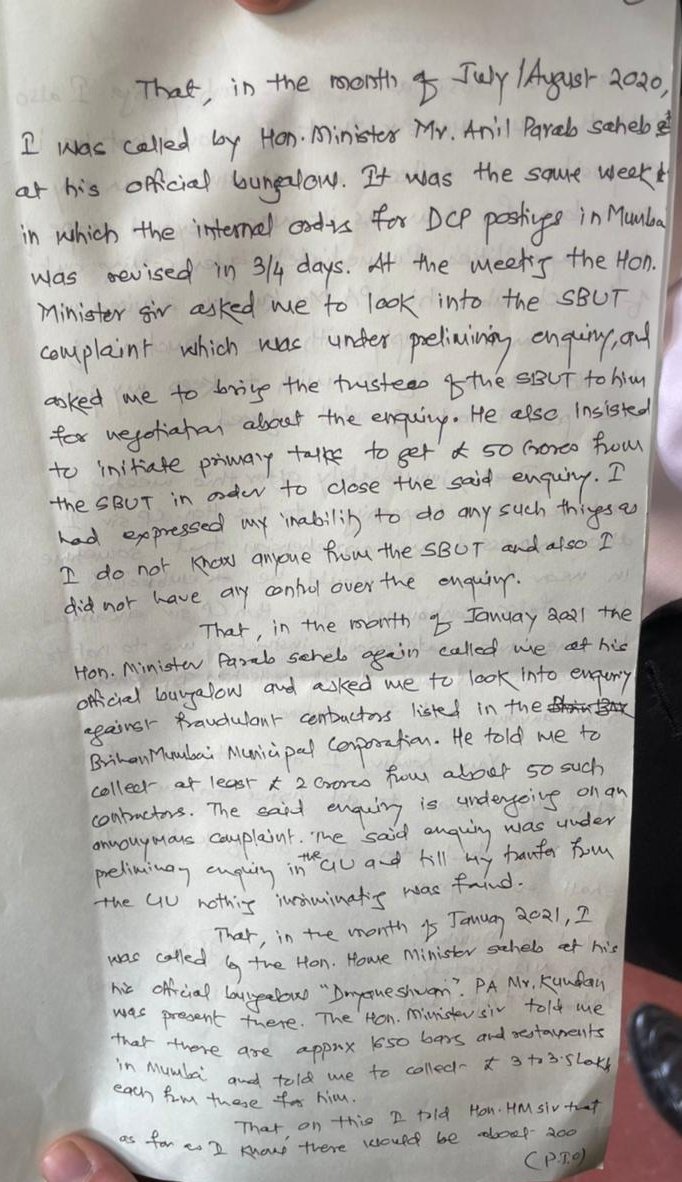 That, in the month of July/August 2020,
I was called by Hon. Minister Mr. Anil Parab saheb
at his official bungalow. It was the same week
in which the internal orders for DCP postings in Mumbai
was revised in 3/4 days. At the meeting the Hon.
Minister sir asked me to look into the SBUT
complaint which was under preliminary enquiry, and
asked me to bring the trustees of the SBUT to him
for negotiation about the enquiry. He also Insisted
to initiate primary talks to get ₹ 50 Crores from
the SBUT in order to close the said enquiry. I
had expressed my inability to do any such things as
I do not know anyone from the SBUT and also I
did not have any control over the enquiry.
That, in the month of January 2021 the
Hon. Minister Parab saheb again called me at his
official bungalow and asked me to look into enquiry
against fraudulant contractors listed in the
BrihanMumbai Municipal Corporation. He told me to
collect at least ₹ 2 Crores from about 50 such
contractors. The said enquiry is undergoing on an
annonymous complaint. The said enquiry was under
preliminary enquiry in the CIU and till my tranfer from
the CIU nothing incriminating was found.
That, in the month of January 2021, I
was called by the Hon. Home Minister saheb at his
his official bungalow "Dnyaneshwari". PA Mr. Kundan
was present there. The Hon. Minister sir told me
that there are appux 1650 bars and restaurents
in Mumbai and told me to collect ₹ 3 to 3.5 Lakh
each from these for him.
That, on this I told Hon. HM sir that
as far as I know there would be about 200
(P.T.O)